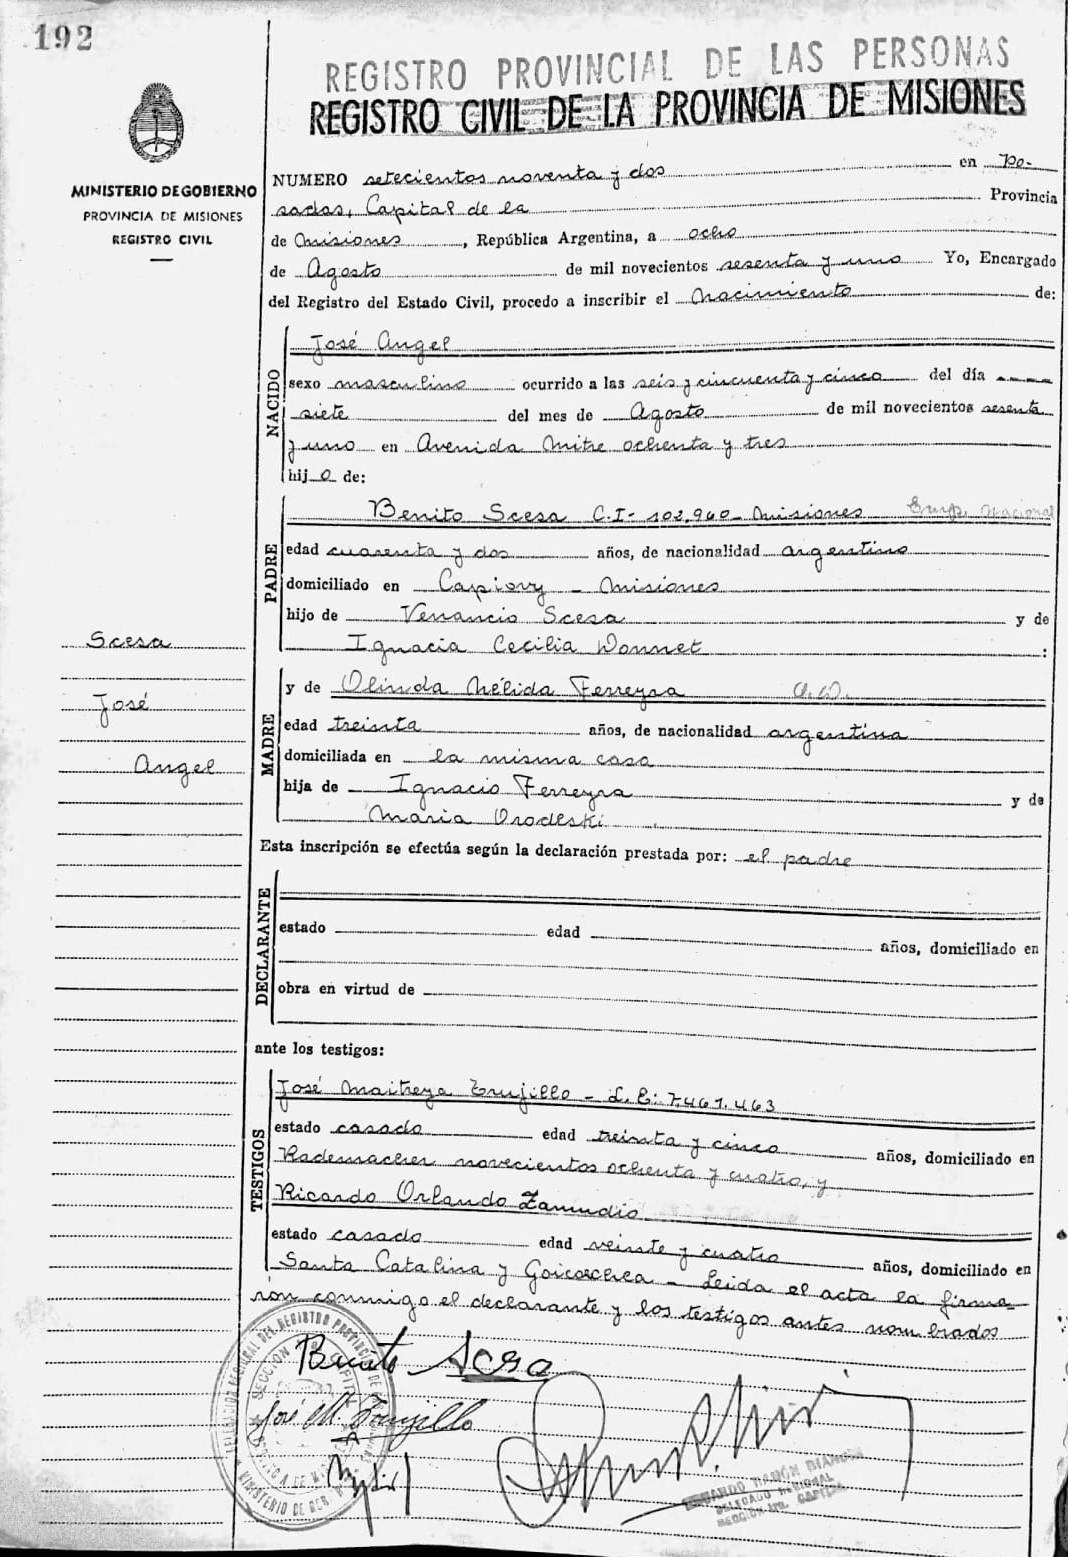 192
REGISTRO PROVINCIAL DE LAS PERSONAS
REGISTRO CIVIL DE LA PROVINCIA DE MISIONES
MINISTERIO DE GOBIERNO
PROVINCIA DE MISIONES
REGISTRO CIVIL
NUMERO setecientos noventa y dos en Po-
sadas, Capital de la Provincia
de Misiones, República Argentina, a ocho
de Agosto de mil novecientos sesenta y uno Yo, Encargado
del Registro del Estado Civil, procedo a inscribir el Nacimiento de:
NACIDO
José Angel
sexo masculino ocurrido a las seis y cincuenta y cinco del día
siete del mes de Agosto de mil novecientos sesenta
y uno en Avenida Mitre ochenta y tres
hijo de:
PADRE
Benito Scesa C.I- 102.960- Misiones Emp. Nacional
edad cuarenta y dos años, de nacionalidad argentino
domiciliado en Capiovy - Misiones
hijo de Venancio Scesa y de
Ignacia Cecilia Donnet :
Scesa
José
Angel
MADRE
y de Olinda Nélida Ferreyra
edad treinta años, de nacionalidad argentina
domiciliada en la misma casa
hija de Ignacio Ferreyra y de
Maria Orodeski
Esta inscripción se efectúa según la declaración prestada por: el padre
DECLARANTE
estado edad años, domiciliado en
obra en virtud de
ante los testigos:
TESTIGOS
José Maitreya Trujillo - L.E: 7.467.463
estado casado edad treinta y cinco años, domiciliado en
Rademacher novecientos ochenta y cuatro, y
Ricardo Orlando Zamudio
estado casado edad veinte y cuatro años, domiciliado en
Santa Catalina y Goicoechea - Leida el acta la firma-
ron conmigo el declarante y los testigos antes nombrados
Benito Scesa
José M. Trujillo
RAMON BIANCHI
DELEGADO REGIONAL
SECCION 1ra. CAPITAL